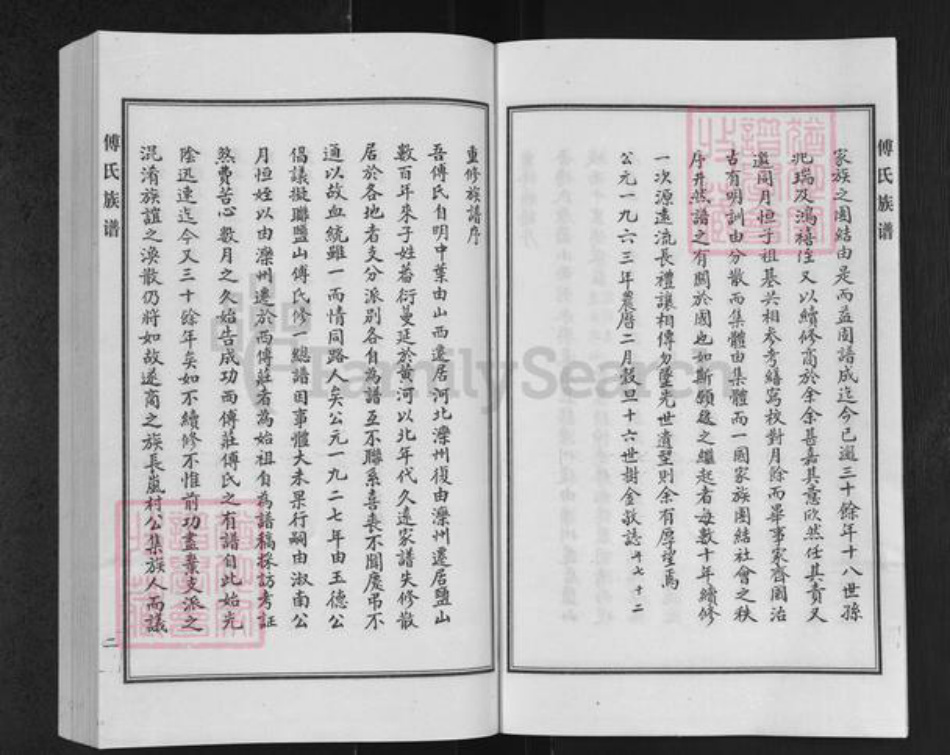 傅氏族谱
家族之團結由是而益固譜成迄今已過三十餘年十八世孫
兆瑞及鴻禧侄又以續修商於余余甚嘉其意欣然任其責又
邀同月恒子祖基共相參考繕寫校對月餘而畢事家齊國治
古有明訓由分散而集體由集體而一國家族團結社會之秩
序井然譜之有關於國也如斯願後之繼起者每數十年續修
一次源遠流長禮讓相傳勿墜先世遺型則余有厚望焉
公元一九六三年農曆二月穀旦十六世樹金敬誌年七十二
重修族譜序
吾傅氏自明中葉由山西遷居河北灤州復由灤州遷居鹽山
數百年來子姓蕃衍蔓延於黄河以北年代久遠家譜失修散
居於各地者支分派別各自為譜互不聯系喜喪不聞慶弔不
通以故血統雖一而情同路人矣公元一九二七年由玉德公
倡議擬聯鹽山傅氏修一總譜因事體大未果行嗣由淑南公
月恒姪以由灤州遷於西傅莊者為始祖自為譜稿採訪考証
煞費苦心數月之久始告成功西傅莊傅氏之有譜自此始光
陰迅速迄今又三十餘年矣如不續修不惟前功盡棄支派之
混淆族誼之渙散仍將如故遂商之族長嵐村公集族人而議
傅氏族谱
二
FamilySearch